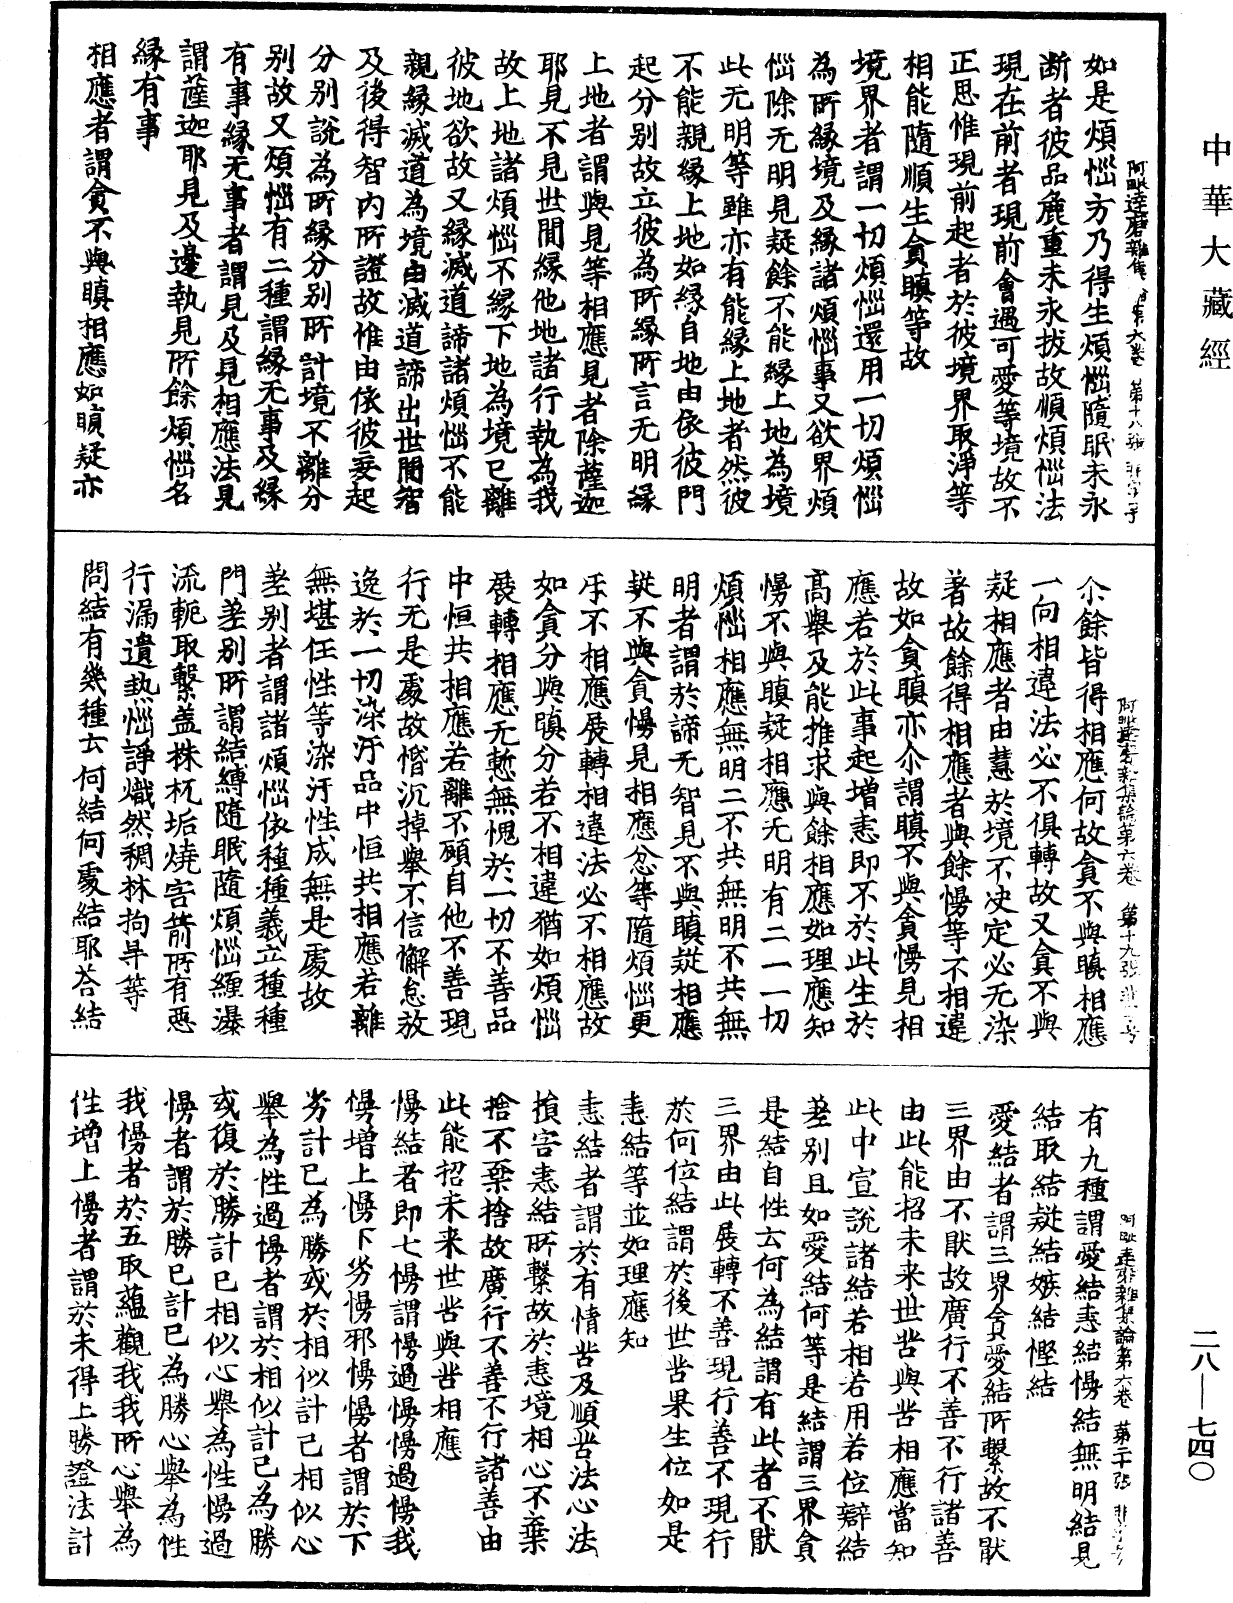 中華大藏經
二八—七四〇
如是煩惱方乃得生煩惱隨眠未永
断者彼品麁重未永拔故順煩惱法
現在前者現前會遇可愛等境故不
正思惟現前起者於彼境界取淨等
相能隨順生貪瞋等故
境界者謂一切煩惱還用一切煩惱
為所緣境及緣諸煩惱事又欲界煩
惱除无明見疑餘不能緣上地為境
此无明等雖亦有能緣上地者然彼
不能親緣上地如緣自地由依彼門
起分别故立彼為所緣所言无明緣
上地者謂與見等相應見者除薩迦
耶見不見世間緣他地諸行執為我
故上地諸煩惱不緣下地為境已離
彼地欲故又緣滅道諦諸煩惱不能
親緣滅道為境由滅道諦出世間智
及後得智內所證故惟由依彼妄起
分别說為所緣分别所計境不離分
别故又煩惱有二種謂緣无事及緣
有事緣无事者謂見及見相應法見
謂薩迦耶見及邊執見所餘煩惱名
緣有事
相應者謂貪不與瞋相應如瞋疑亦
阿毗達磨雜集論第六卷 第十八張
尒餘皆得相應何故貪不與瞋相應
一向相違法必不俱轉故又貪不與
疑相應者由慧於境不决定必无染
著故餘得相應者與餘慢等不相違
故如貪瞋亦尒謂瞋不與貪慢見相
應若於此事起增恚即不於此生於
高舉及能推求與餘相應如理應知
慢不與瞋疑相應无明有二一一切
煩惱相應無明二不共無明不共無
明者謂於諦无智見不與瞋疑相應
疑不與貪慢見相應忿等隨煩惱更
互不相應展轉相違法必不相應故
如貪分與瞋分若不相違猶如煩惱
展轉相應无慙無愧於一切不善品
中恒共相應若離不顧自他不善現
行无是處故惛沉掉舉不信懈怠放
逸於一切染汙品中恒共相應若離
無堪任性等染汙性成無是處故
差别者謂諸煩惱依種種義立種種
門差别所謂結縛隨眠隨煩惱纏瀑
流軛取繫蓋株杌垢燒害箭所有惡
行漏遺熱惱諍熾然稠林拘旱等
問結有幾種云何結何處結耶荅結
阿毗達磨雜集論第六卷 第十九張
有九種謂愛結恚結慢結無明結見
結取結疑結嫉結慳結
愛結者謂三界貪愛結所繫故不猒
三界由不猒故廣行不善不行諸善
由此能招未来世苦與苦相應當知
此中宣說諸結若相若用若位辯結
差别且如愛結何等是結謂三界貪
是結自性云何為結謂有此者不猒
三界由此展轉不善現行善不現行
於何位結謂於後世苦果生位如是
恚結等並如理應知
恚結者謂於有情苦及順苦法心法
損害恚結所繫故於恚境相心不棄
捨不棄捨故廣行不善不行諸善由
此能招未来世苦與苦相應
慢結者即七慢謂慢過慢慢過慢我
慢增上慢下劣慢邪慢慢者謂於下
劣計己為勝或於相似計己相似心
舉為性過慢者謂於相似計己為勝
或復於勝計己相似心舉為性慢過
慢者謂於勝己計己為勝心舉為性
我慢者於五取蘊觀我我所心舉為
性增上慢者謂於未得上勝證法計
阿毗達磨雜集論第六卷 第二十張